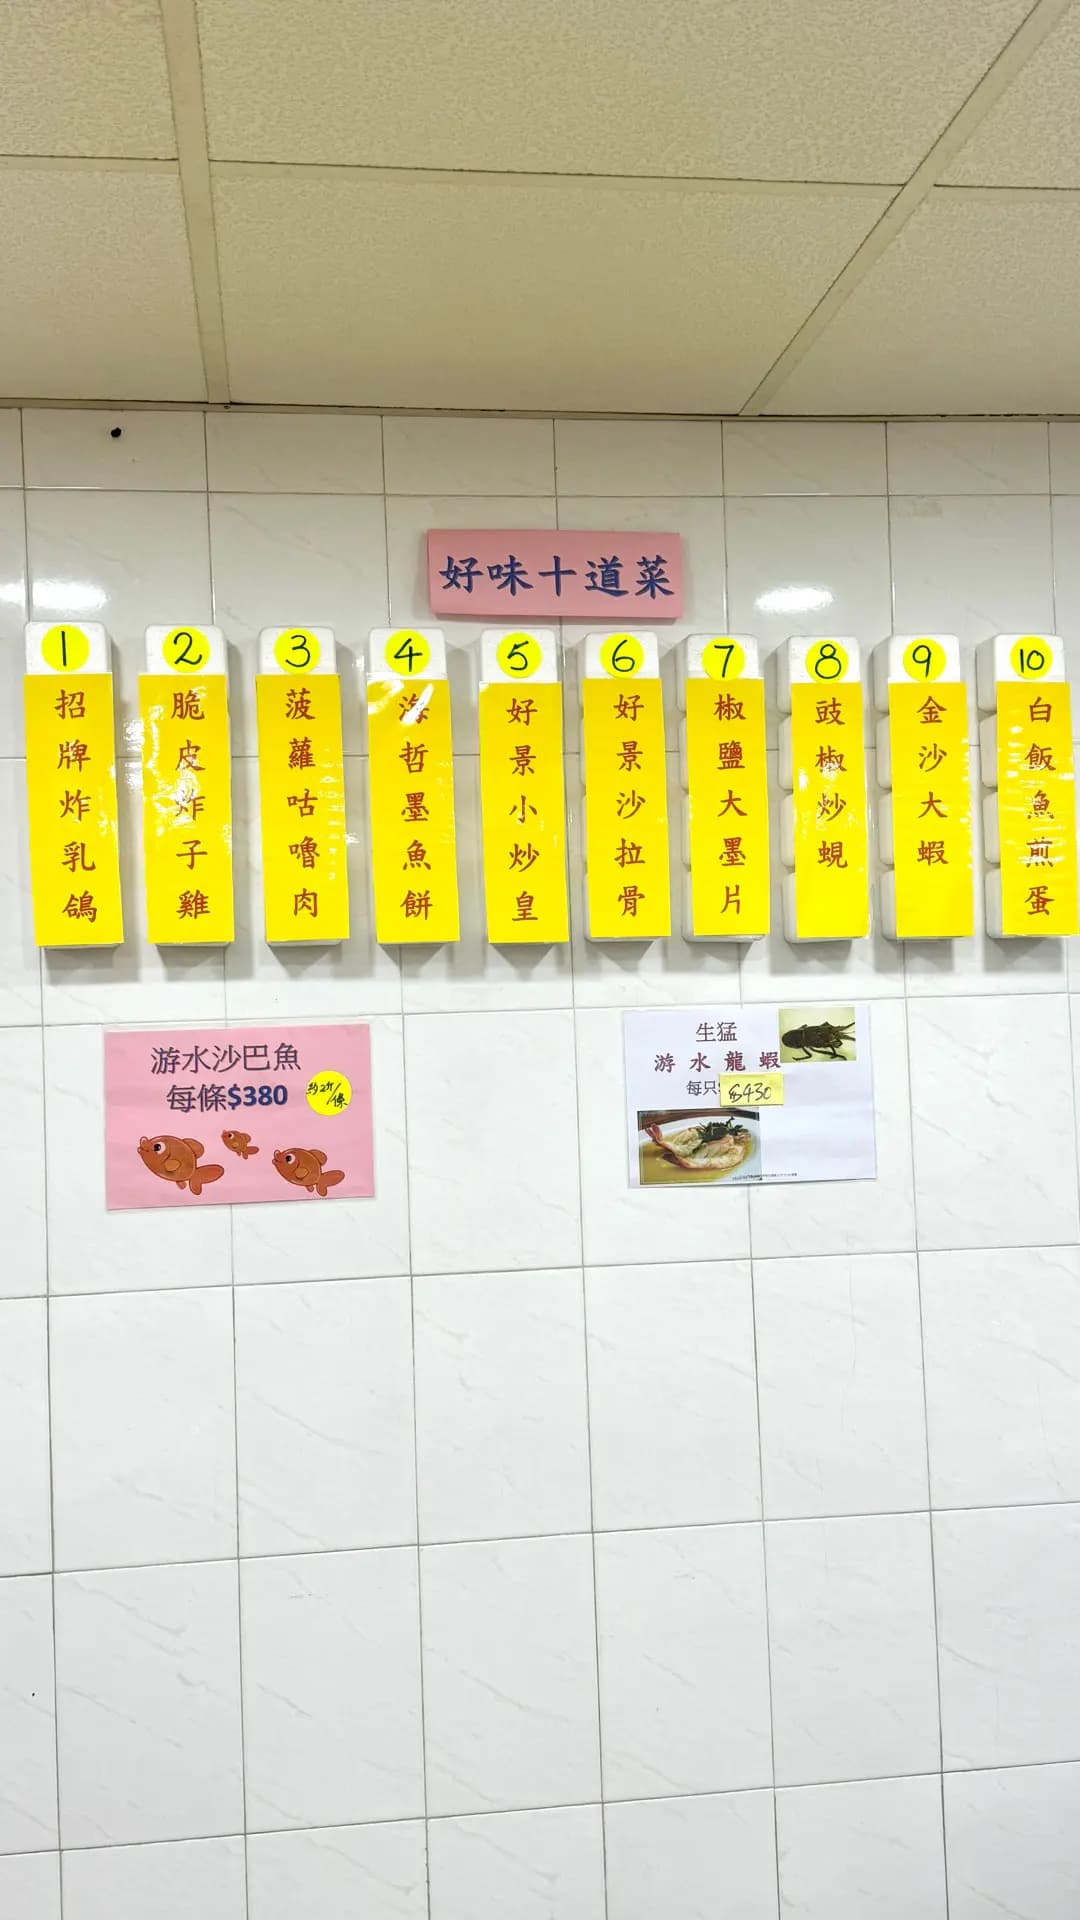 好味十道菜
1
招牌炸乳鴿
2
脆皮炸子雞
3
菠蘿咕嚕肉
4
海哲墨魚餅
5
好景小炒皇
6
好景沙拉骨
7
椒鹽大墨片
8
豉椒炒蜆
9
金沙大蝦
10
白飯魚煎蛋
游水沙巴魚
每條$380
生猛
游水龍蝦
每只
$430